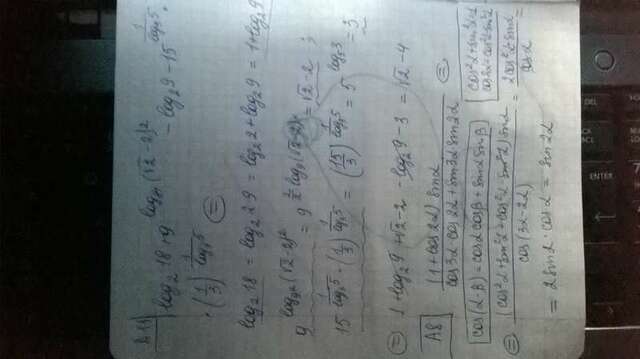 A11 log₂18 + 9^(log₈₁(√2-2)²) - log₂9 - 15^(1/log₃5) ·
· (1/3)^(1/log₃5) =
log₂18 = log₂2·9 = log₂2 + log₂9 = 1 + log₂9
9^(log₉²(√2-2)²) = 9^(2/2 log₉(√2-2)) = √2-2 ;
15^(1/log₃5) · (1/3)^(1/log₃5) = (15/3)^(1/log₃5) = 5^(log₅3) = 3
= 1 + log₂9 + √2 - 2 - log₂9 - 3 = √2 - 4
A8 (1+cos2α) sinα / (cos3α cos2α + sin3α sin2α) =
cos(α-β) = cosα cosβ + sinα sinβ
cos²α + sin²α = 1
cos2α = cos²α - sin²α
= (cos²α + sin²α + cos²α - sin²α) sinα / cos(3α-2α) = 2cos²α sinα / cosα =
= 2sinα · cosα = sin2α
ENTER